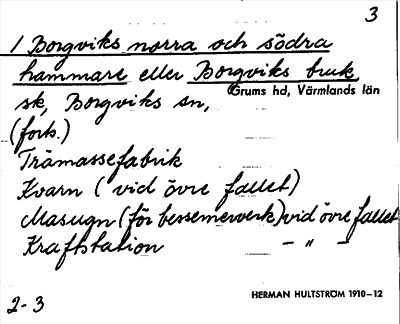 3
1 Borgviks norra och södra
hammare eller Borgviks bruk
Grums hd, Värmlands län
sk, Borgviks sn,
(forts.)
Trämassefabrik
Kvarn (vid övre fallet)
Masugn (för bessemerverk) vid övre fallet
Kraftstation - " -
2-3
HERMAN HULTSTRÖM 1910-12